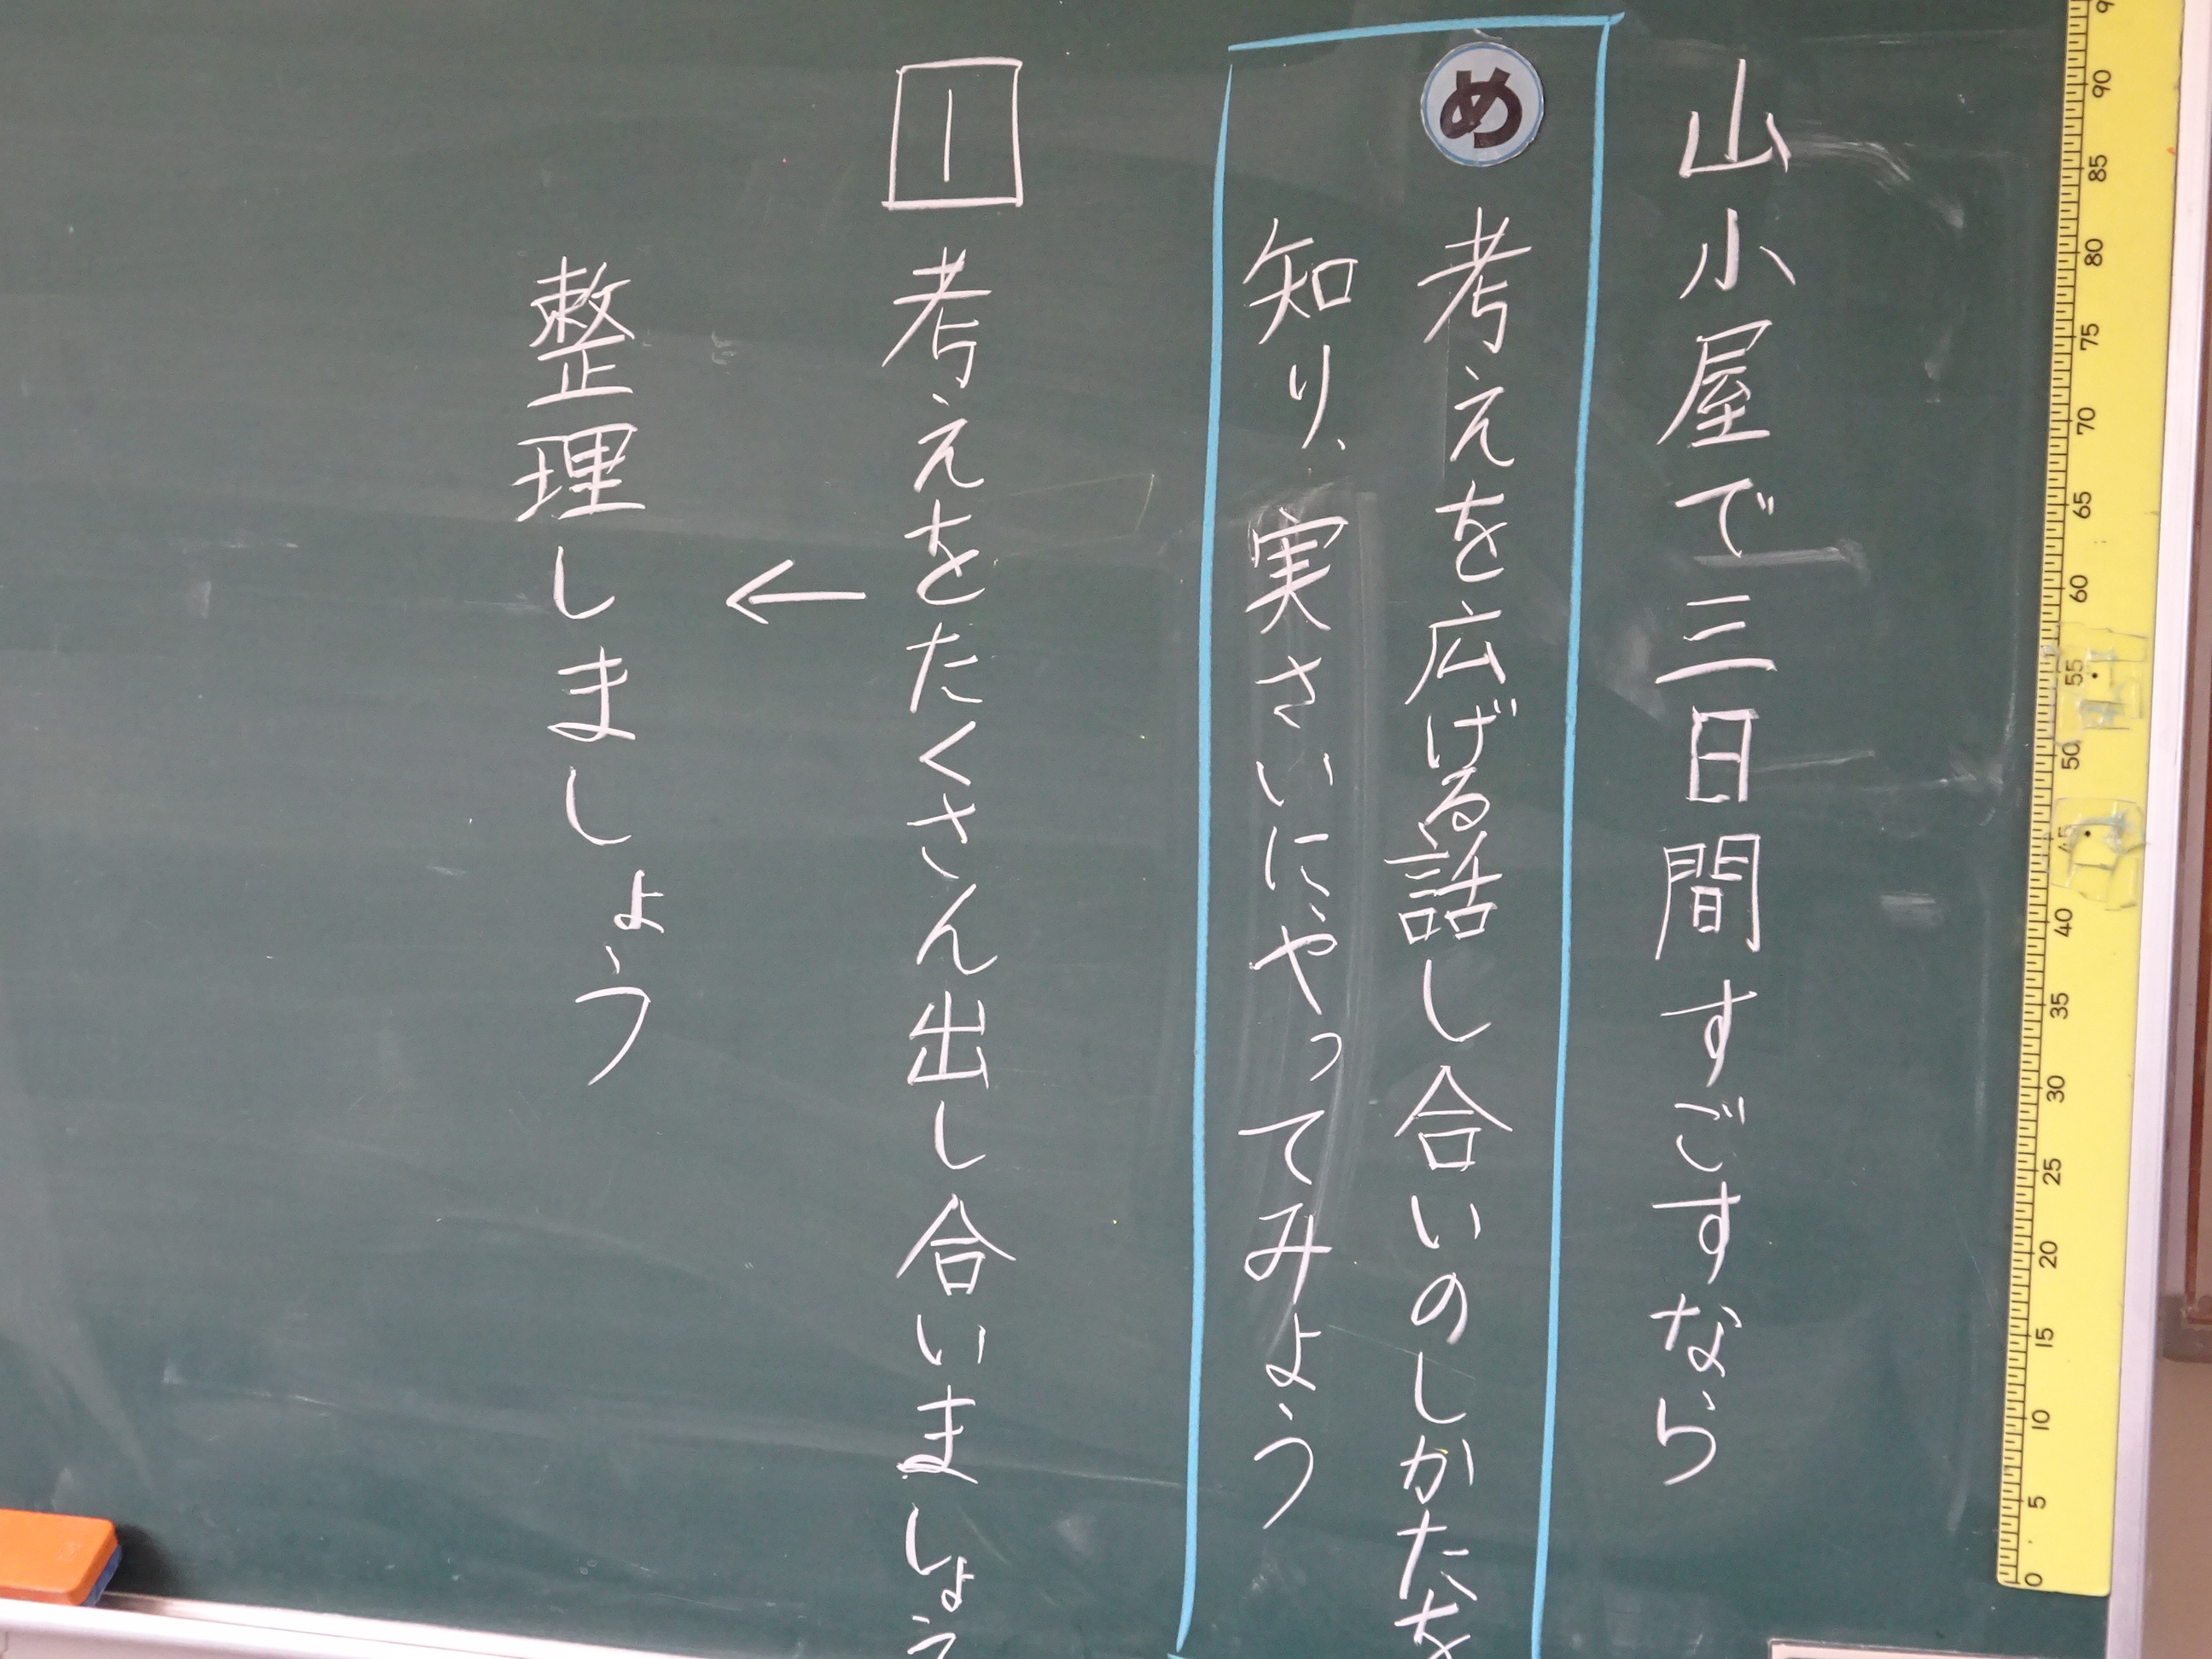 山小屋で三日間すごすなら
め 考えを広げる話し合いのしかたを
知り、実さいにやってみよう
1 考えをたくさん出し合いましょう
←
整理しましょう
90
85
80
75
70
65
60
55
50
45
40
35
30
25
20
15
10
5
0